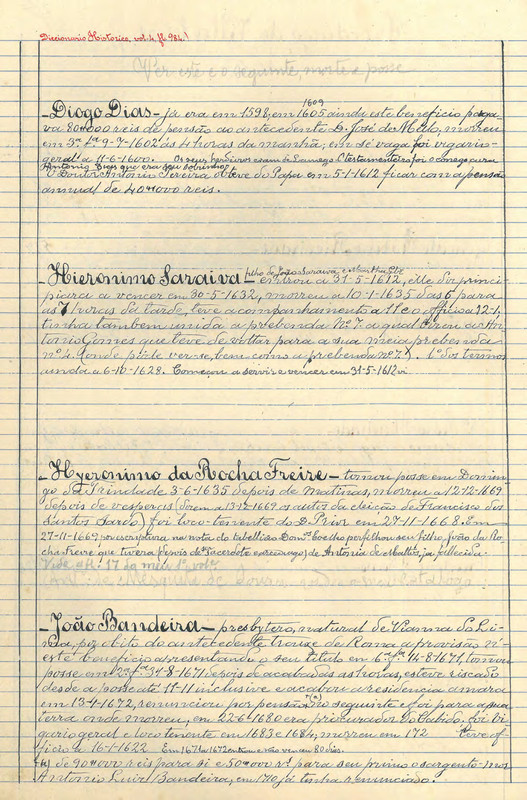 Diccionario Historico, vol. 4, fl. 984!
Ver este e o seguinte, morte e posse
1609
-Diogo Dias- já era em 1598, em 1605 ainda este beneficio paga
va 80#000 reis de pensão ao antecedente D. José de Mello, morreu
em 3ª fª 9-7-1602 ás 4 horas da manhã, em sé vaga foi vigario
geral a 11-6-1600. Os seus herdeiros eram de Lamego O testamenteiro foi o conego cura
Antonio Dias que era seu sobrinho
O Doutor Antonio Pereira obteve do Papa em 5-1-1612 ficar com a pensão
annual de 40#000 reis.
filho de João Saraiva e Martha
-Hieronimo Saraiva- entrou a 31-5-1612, elle diz princi
piara a vencer em 30-5-1632, morreu a 10-1-1635 das 6 para
as 7 horas da tarde, teve acompanhamento a 11 e o officio a 12-1,
tinha tambem unida a prebenda Nº 7 a qual deu ao An
tonio Gomes que teve de voltar para a sua meia prebenda
nº 4 (onde póde ver-se, bem como a prebenda nº 7.) 1º dos termos
ainda a 6-10-1628. Começou a servir e vencer em 31-5-1612 vi.
-Hyeronimo da Rocha Freire- tomou posse em Domin
go da Trindade 3-6-1635 depois de matinas, morreu a 12-12-1669
depois de vesperas (Dizem a 13-12-1669 os autos da eleição de Francisco dos
Santos Sardo) foi loco-tenente do D. Prior em 27-11-1668. Em
27-11-1669 por escriptura na nota do tabellião Domºs Coelho perfilhou seu filho João da Ro
cha Freire que tivera depois de Sacerdote e arcenago) de Antonia de Mattos, ja fallecida.
Vide a fl. 17 do meu 1º vol.
Ant. de Mesquita de Sousa catalogo
-João Bandeira- presbytero, natural de Vianna do Li-
ma, por obito do antecedente trouxe de Roma a provisão n'
este beneficio apresentando o seu titulo em 6ª fª 14-8-1671, tomou
posse em 2ª fª 31-8-1671 depois de acabadas as horas, esteve riscado
desde a posse até 11-11 inclusive e acabou a residencia amara
em 13-4-1672, renunciou por pensão no seguinte e foi para a sua
terra onde morreu, em 22-6-1680 era procurador do Cabido, foi vi
gario geral e loco tenente em 1683 e 1684, morreu em 172 Teve of-
ficio a 16-1-1622 Em 1671 a 1672 entrou e não venceu 80 dias.
(a) de 90#000 reis para si e 50#000 rs. para seu primo o sargento-mor
Antonio Luiz Bandeira, em 170 já tinha renunciado.